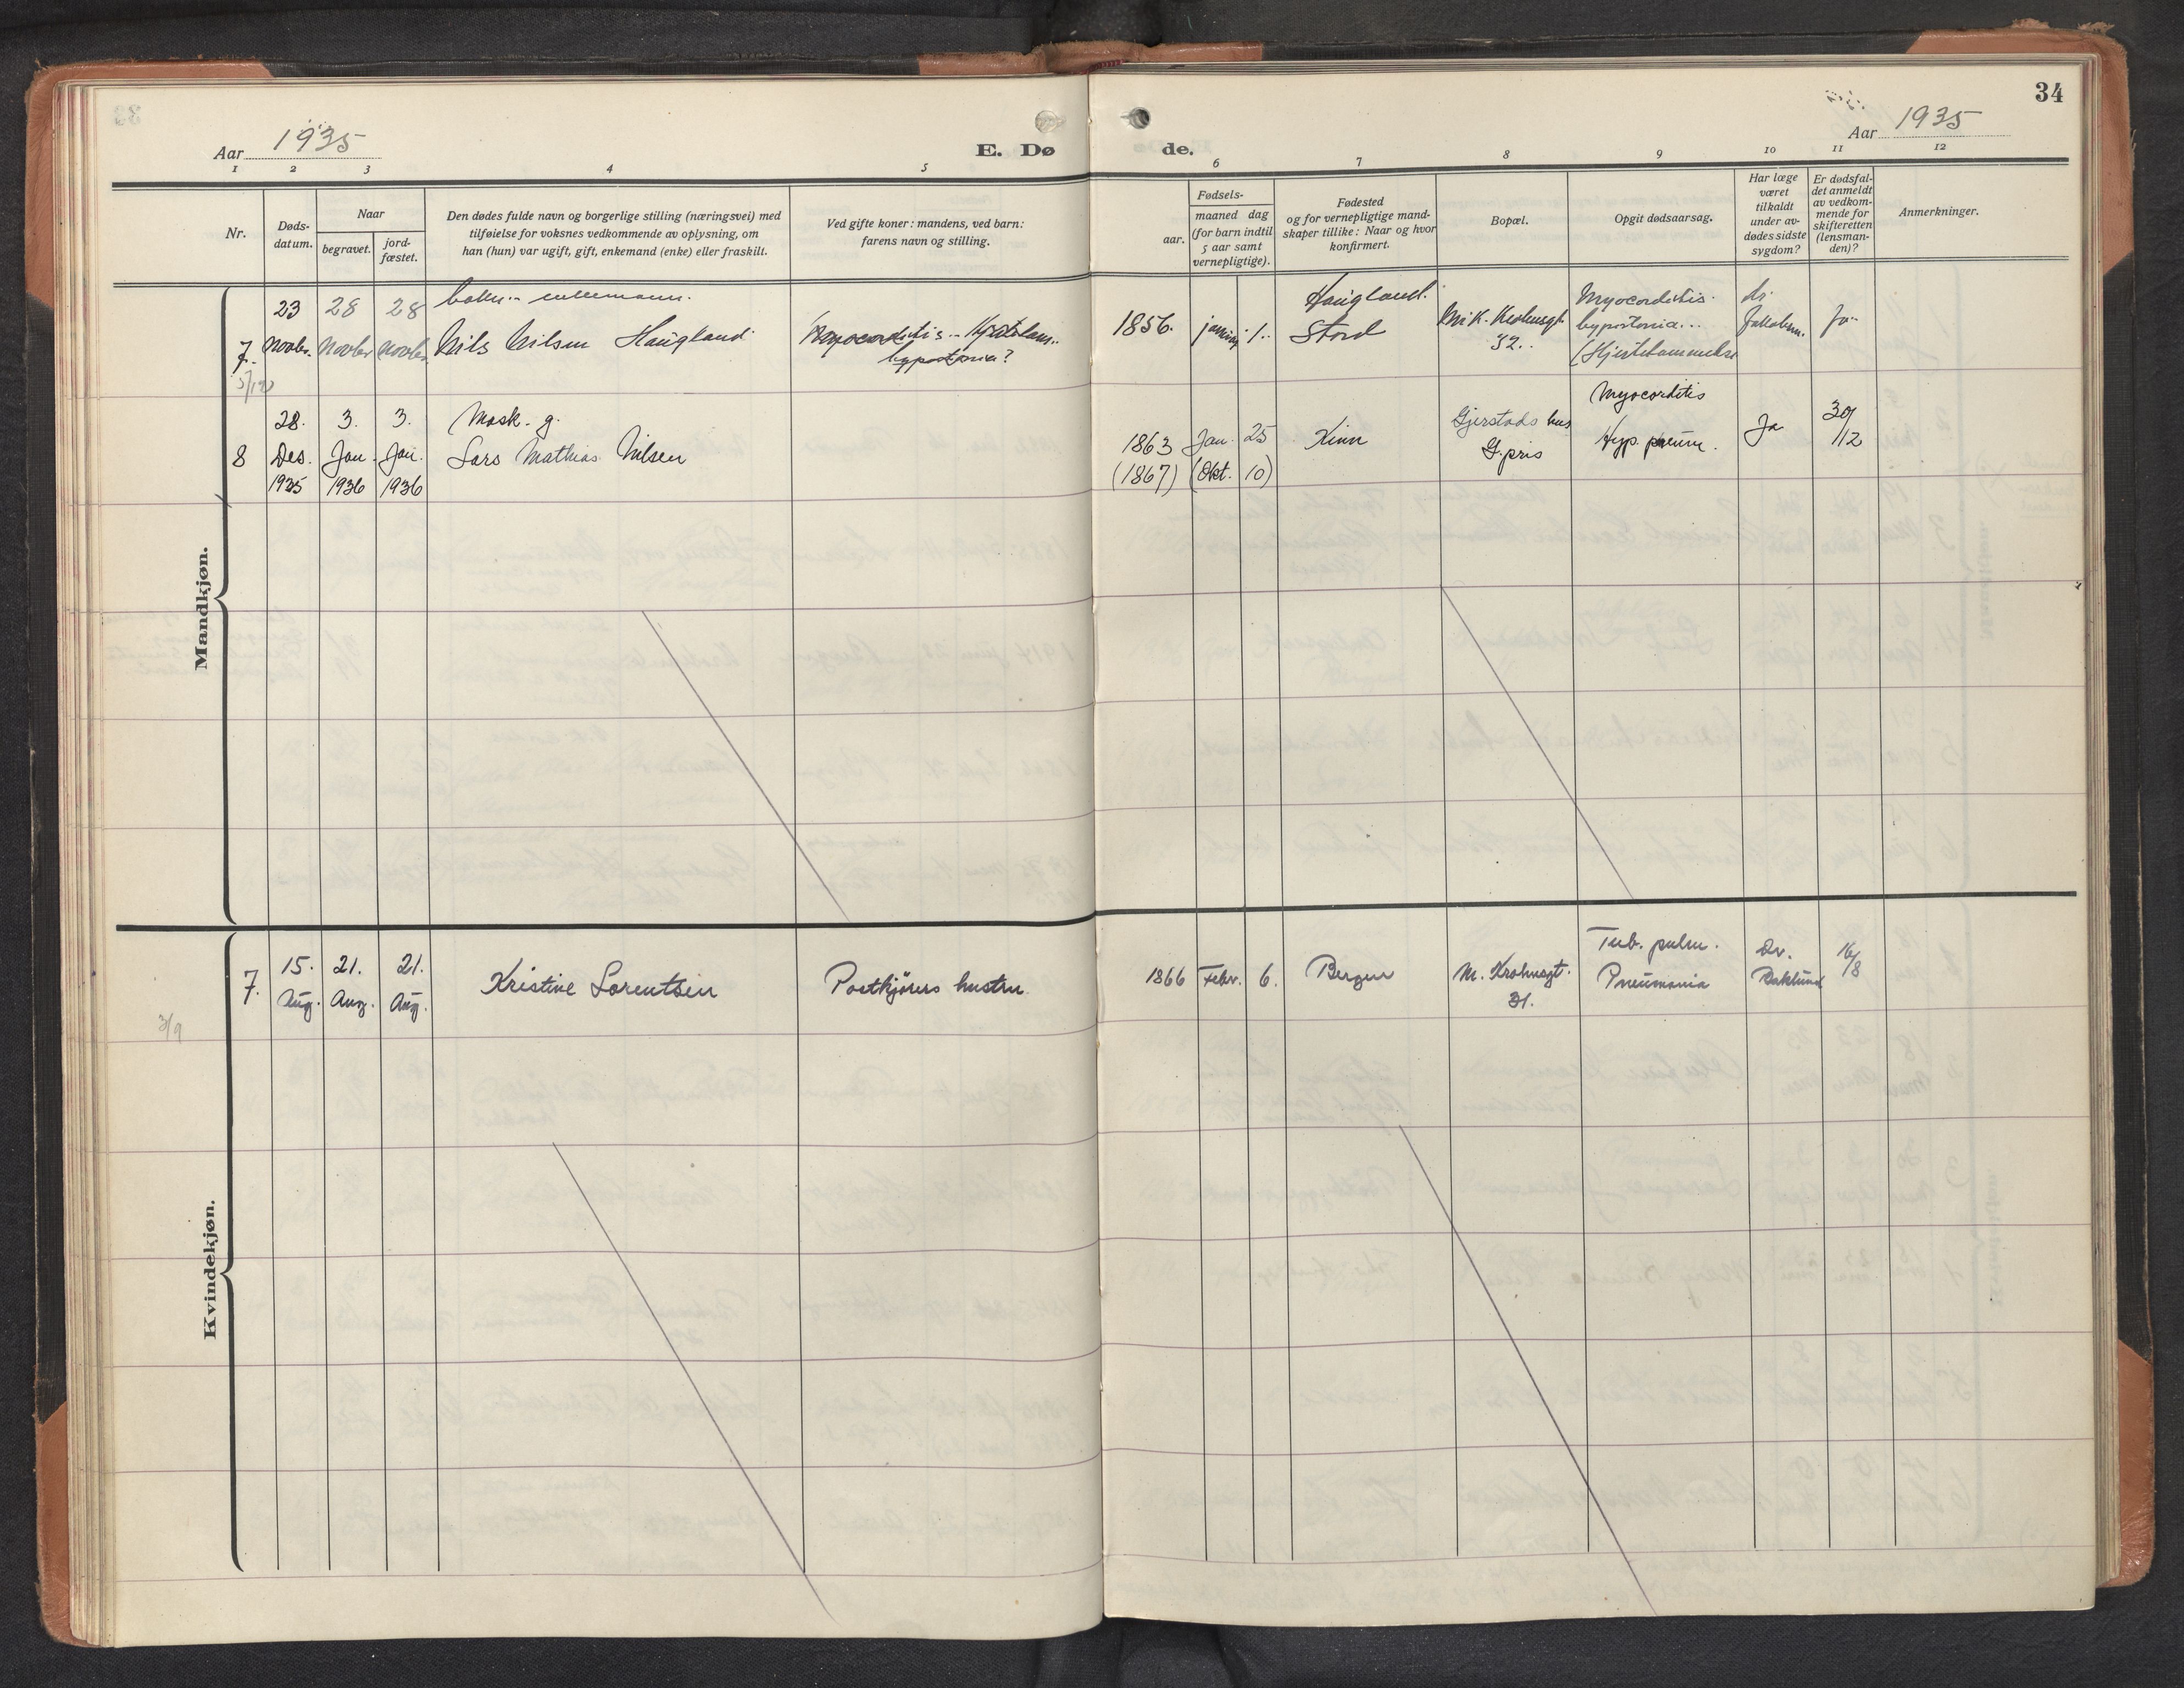 34
Aar 1935
E. Dø
de.
Aar 1935
1 2 3 4 5 6 7 8 9 10 11 12
Nr.
Døds-
datum.
Naar
begravet.
jord-
fæstet.
Den dødes fulde navn og borgerlige stilling (næringsvei) med
tilføielse for voksnes vedkommende av oplysning, om
han (hun) var ugift, gift, enkemand (enke) eller fraskilt.
Ved gifte koner: mandens, ved barn:
farens navn og stilling.
Fødsels-
aar.
maaned dag
(for barn indtil
5 aar samt
vernepligtige).
Fødested
og for vernepligtige mand-
skaper tillike: Naar og hvor
konfirmert.
Bopæl.
Opgit dødsaarsag.
Har læge
været
tilkaldt
under av-
dødes sidste
sygdom?
Er dødsfal-
det anmeldt
av vedkom-
mende for
skifteretten
(lensman-
den)?
Anmerkninger.
Mandkjøn.
7.
23
Novbr.
28
Novbr
28
Novbr.
Nils Nilsen Haugland
Myocorditis
hypostonia?
1856.
1.
Haugland.
Stord
32.
Myocorditis.
hypostonia...
Dr.
Ja
8
28.
Des.
1935
3.
Jan.
1936
3.
Jan.
1936
Mask. g.
Lars Mathias Nilsen
1863 Jan. 25
(1867) (Okt. 10)
Kinn
Gjerstads hus
G.pris
Myocorditis
Hyp. pneum.
Ja
30/12
Kvindekjøn.
7.
15.
Aug.
21.
Aug.
21.
Aug.
Kristine Lorentsen
Postkjørers hustru
1866 Febr. 6.
Bergen
M. Krohnsgt.
31.
Tub. pulm.
Pneumonia
Dr.
16/8
3/9